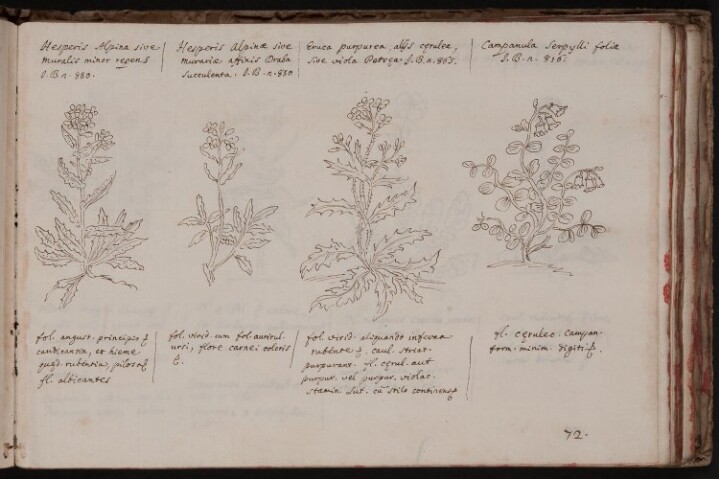 Hesperis Alpina sive
muralis minor repens
I.B.n. 880.
Hesperis Alpinæ sive
murariæ affinis Draba
succulenta. I.B.n. 880
Eruca purpurea, alijs cęrulea,
sive viola Petręa. I.B.n. 865.
Campanula Serpylli foliæ
I.B.n. 816.
fol. angust. principio
candicantia, et hieme
rubentia, pilos
fl. albicantes
fol. virid. cum fol. auricul.
ursi, flore carnei coloris
fol. virid. aliquando inferna
rubente caul. striat.
purpurant. fl. cęrul. aut
purpur. vel purpur. violac.
stamin lut. cū stilo continens
fl. cęruleo. Campan-
form. minim. digiti
72.